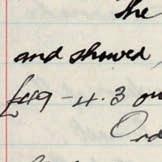 the
and showed
£49-4.3 ou
Ord